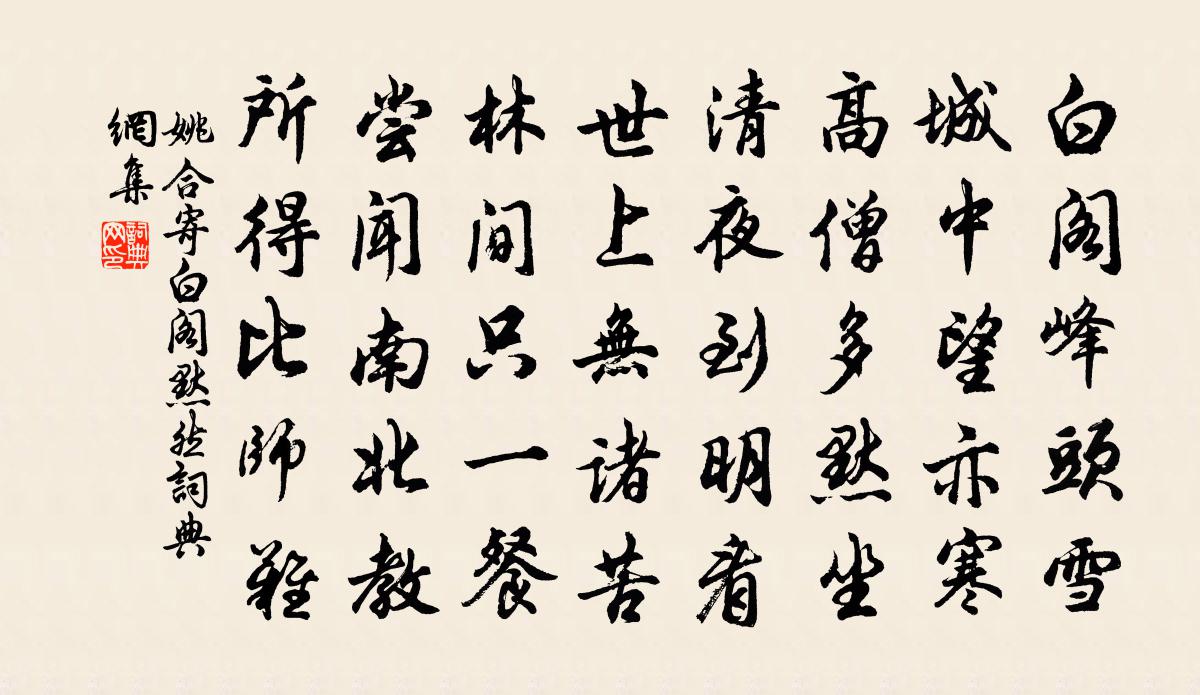 白阁峰頭雪
城中望亦寒
高僧多默坐
清夜到明看
世上無諸苦
林间只一餐
尝闻南北教
所得比师難
姚合寄白阁默然詞典
網集
詞典网印